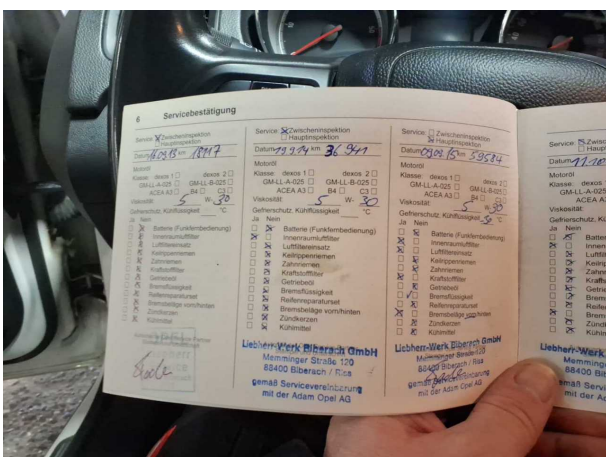 6 Servicebestätigung
Service Zwischeninspektion
Hauptinspektion
Datum 16.09.13 km 18117
Motoröl
Klasse: dexos 1 dexos 2
GM-LL-A-025 GM-LL-B-025
ACEA A3 B4 C3
Viskosität 5 W- 30
Gefrierschutz, Kühlflüssigkeit °C
Ja Nein
Batterie (Funkfernbedienung)
Innenraumluftfilter
Luftfiltereinsatz
Keilrippenriemen
Zahnriemen
Kraftstofffilter
Getriebeöl
Bremsflüssigkeit
Reifenreparaturset
Bremsbeläge vorn/hinten
Zündkerzen
Kühlmittel
Service Zwischeninspektion
Hauptinspektion
Datum km 36 941
Motoröl
Klasse: dexos 1 dexos 2
GM-LL-A-025 GM-LL-B-025
ACEA A3 B4 C3
Viskosität 5 W- 30
Gefrierschutz, Kühlflüssigkeit °C
Ja Nein
Batterie (Funkfernbedienung)
Innenraumluftfilter
Luftfiltereinsatz
Keilrippenriemen
Zahnriemen
Kraftstofffilter
Getriebeöl
Bremsflüssigkeit
Reifenreparaturset
Bremsbeläge vorn/hinten
Zündkerzen
Kühlmittel
Liebherr-Werk Biberach GmbH
Memminger Straße 120
88400 Biberach / Riss
gemäß Servicevereinbarung
mit der Adam Opel AG
Service Zwischeninspektion
Hauptinspektion
Datum km 59584
Motoröl
Klasse: dexos 1 dexos 2
GM-LL-A-025 GM-LL-B-025
ACEA A3 B4 C3
Viskosität 5 W-
Gefrierschutz, Kühlflüssigkeit °C
Ja Nein
Batterie (Funkfernbedienung)
Innenraumluftfilter
Luftfiltereinsatz
Keilrippenriemen
Zahnriemen
Kraftstofffilter
Getriebeöl
Bremsflüssigkeit
Reifenreparaturset
Bremsbeläge vorn/hinten
Zündkerzen
Kühlmittel
Liebherr-Werk Biberach GmbH
Memminger Straße 120
88400 Biberach / Riss
gemäß Servicevereinbarung
mit der Adam Opel AG
Service
Datum
Motoröl
Klasse: dexos
GM-LL-A-025
ACEA A3
Viskosität
Ja Nein